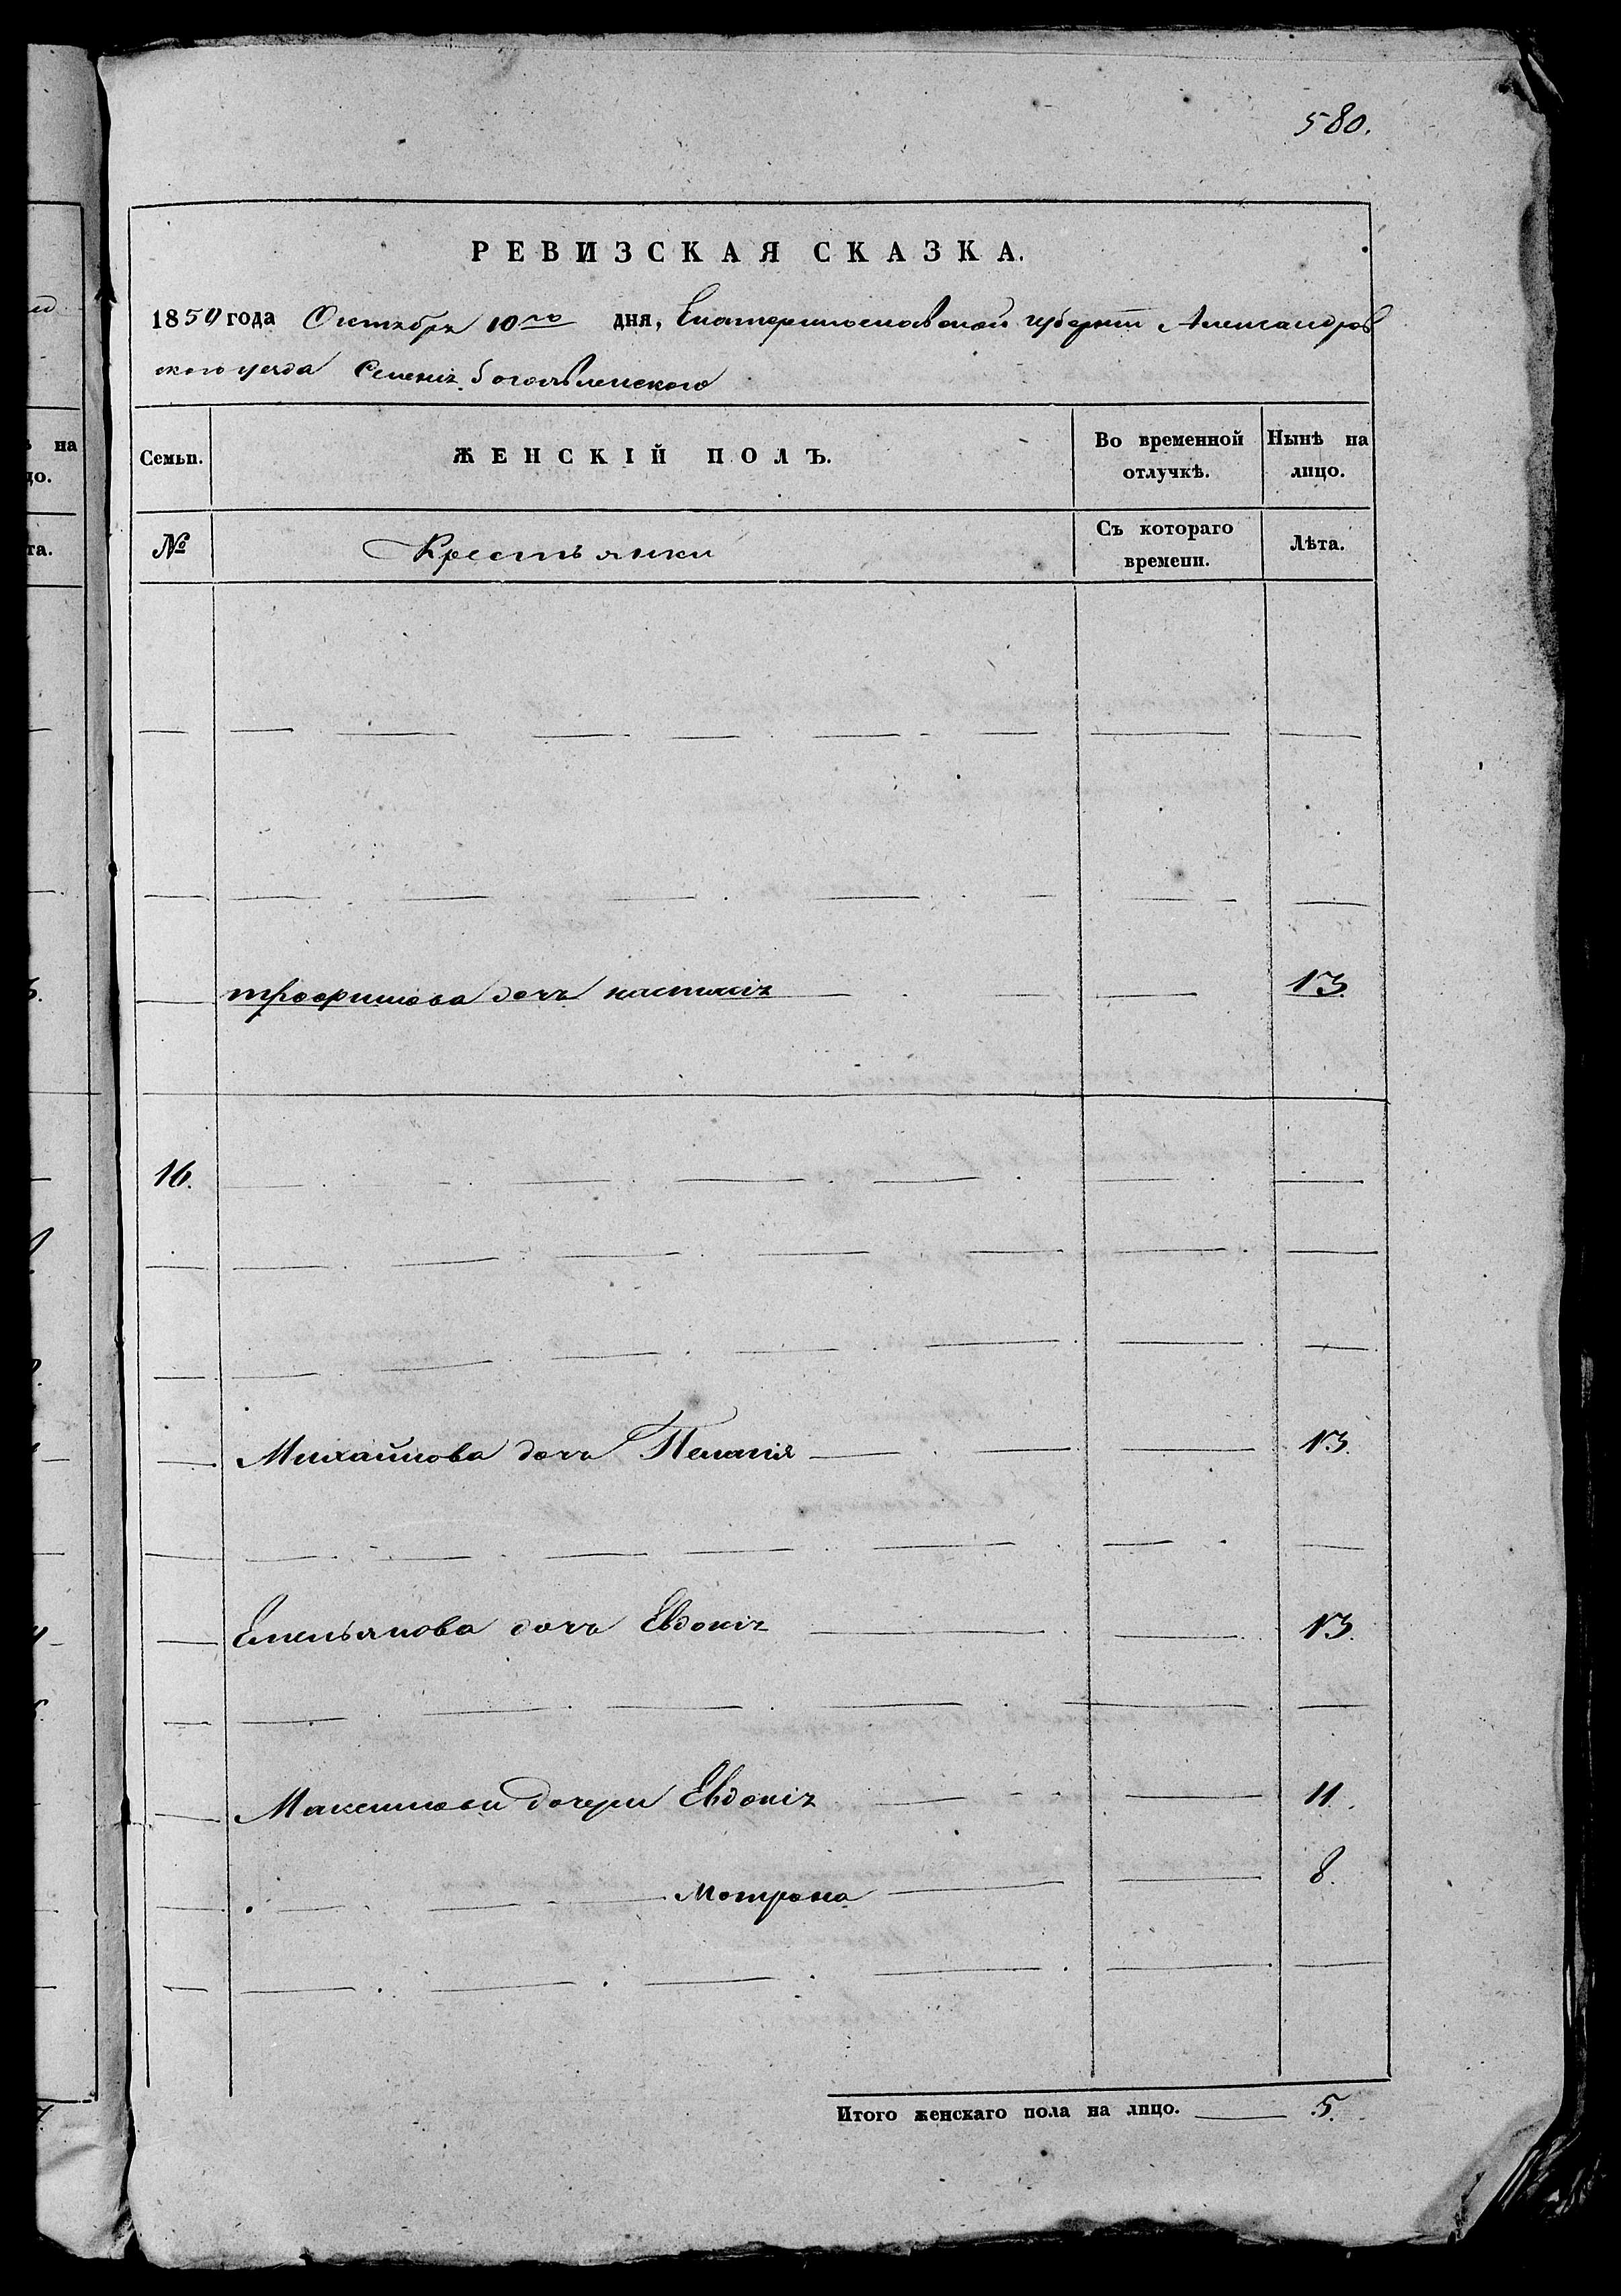 580.
РЕВИЗСКАЯ СКАЗКА.
1850 года Октября 10го дня, Екатеринославской губернїи Александров
ского уезда Селенія Богоявленского
Семьи.
ЖЕНСКІЙ ПОЛЪ.
Во временной отлучкѣ.
Нынѣ на лицо.
№
Крестьянки
Съ котораго времени.
Лѣта.
трофимова дочь настасія 13.
16.
Михайлова дочь Пелагія 13.
Емельянова дочь Евдокія 13.
Максимови дочери Евдокія 11.
Мотрона 8.
Итого женскаго пола на лицо. 5.